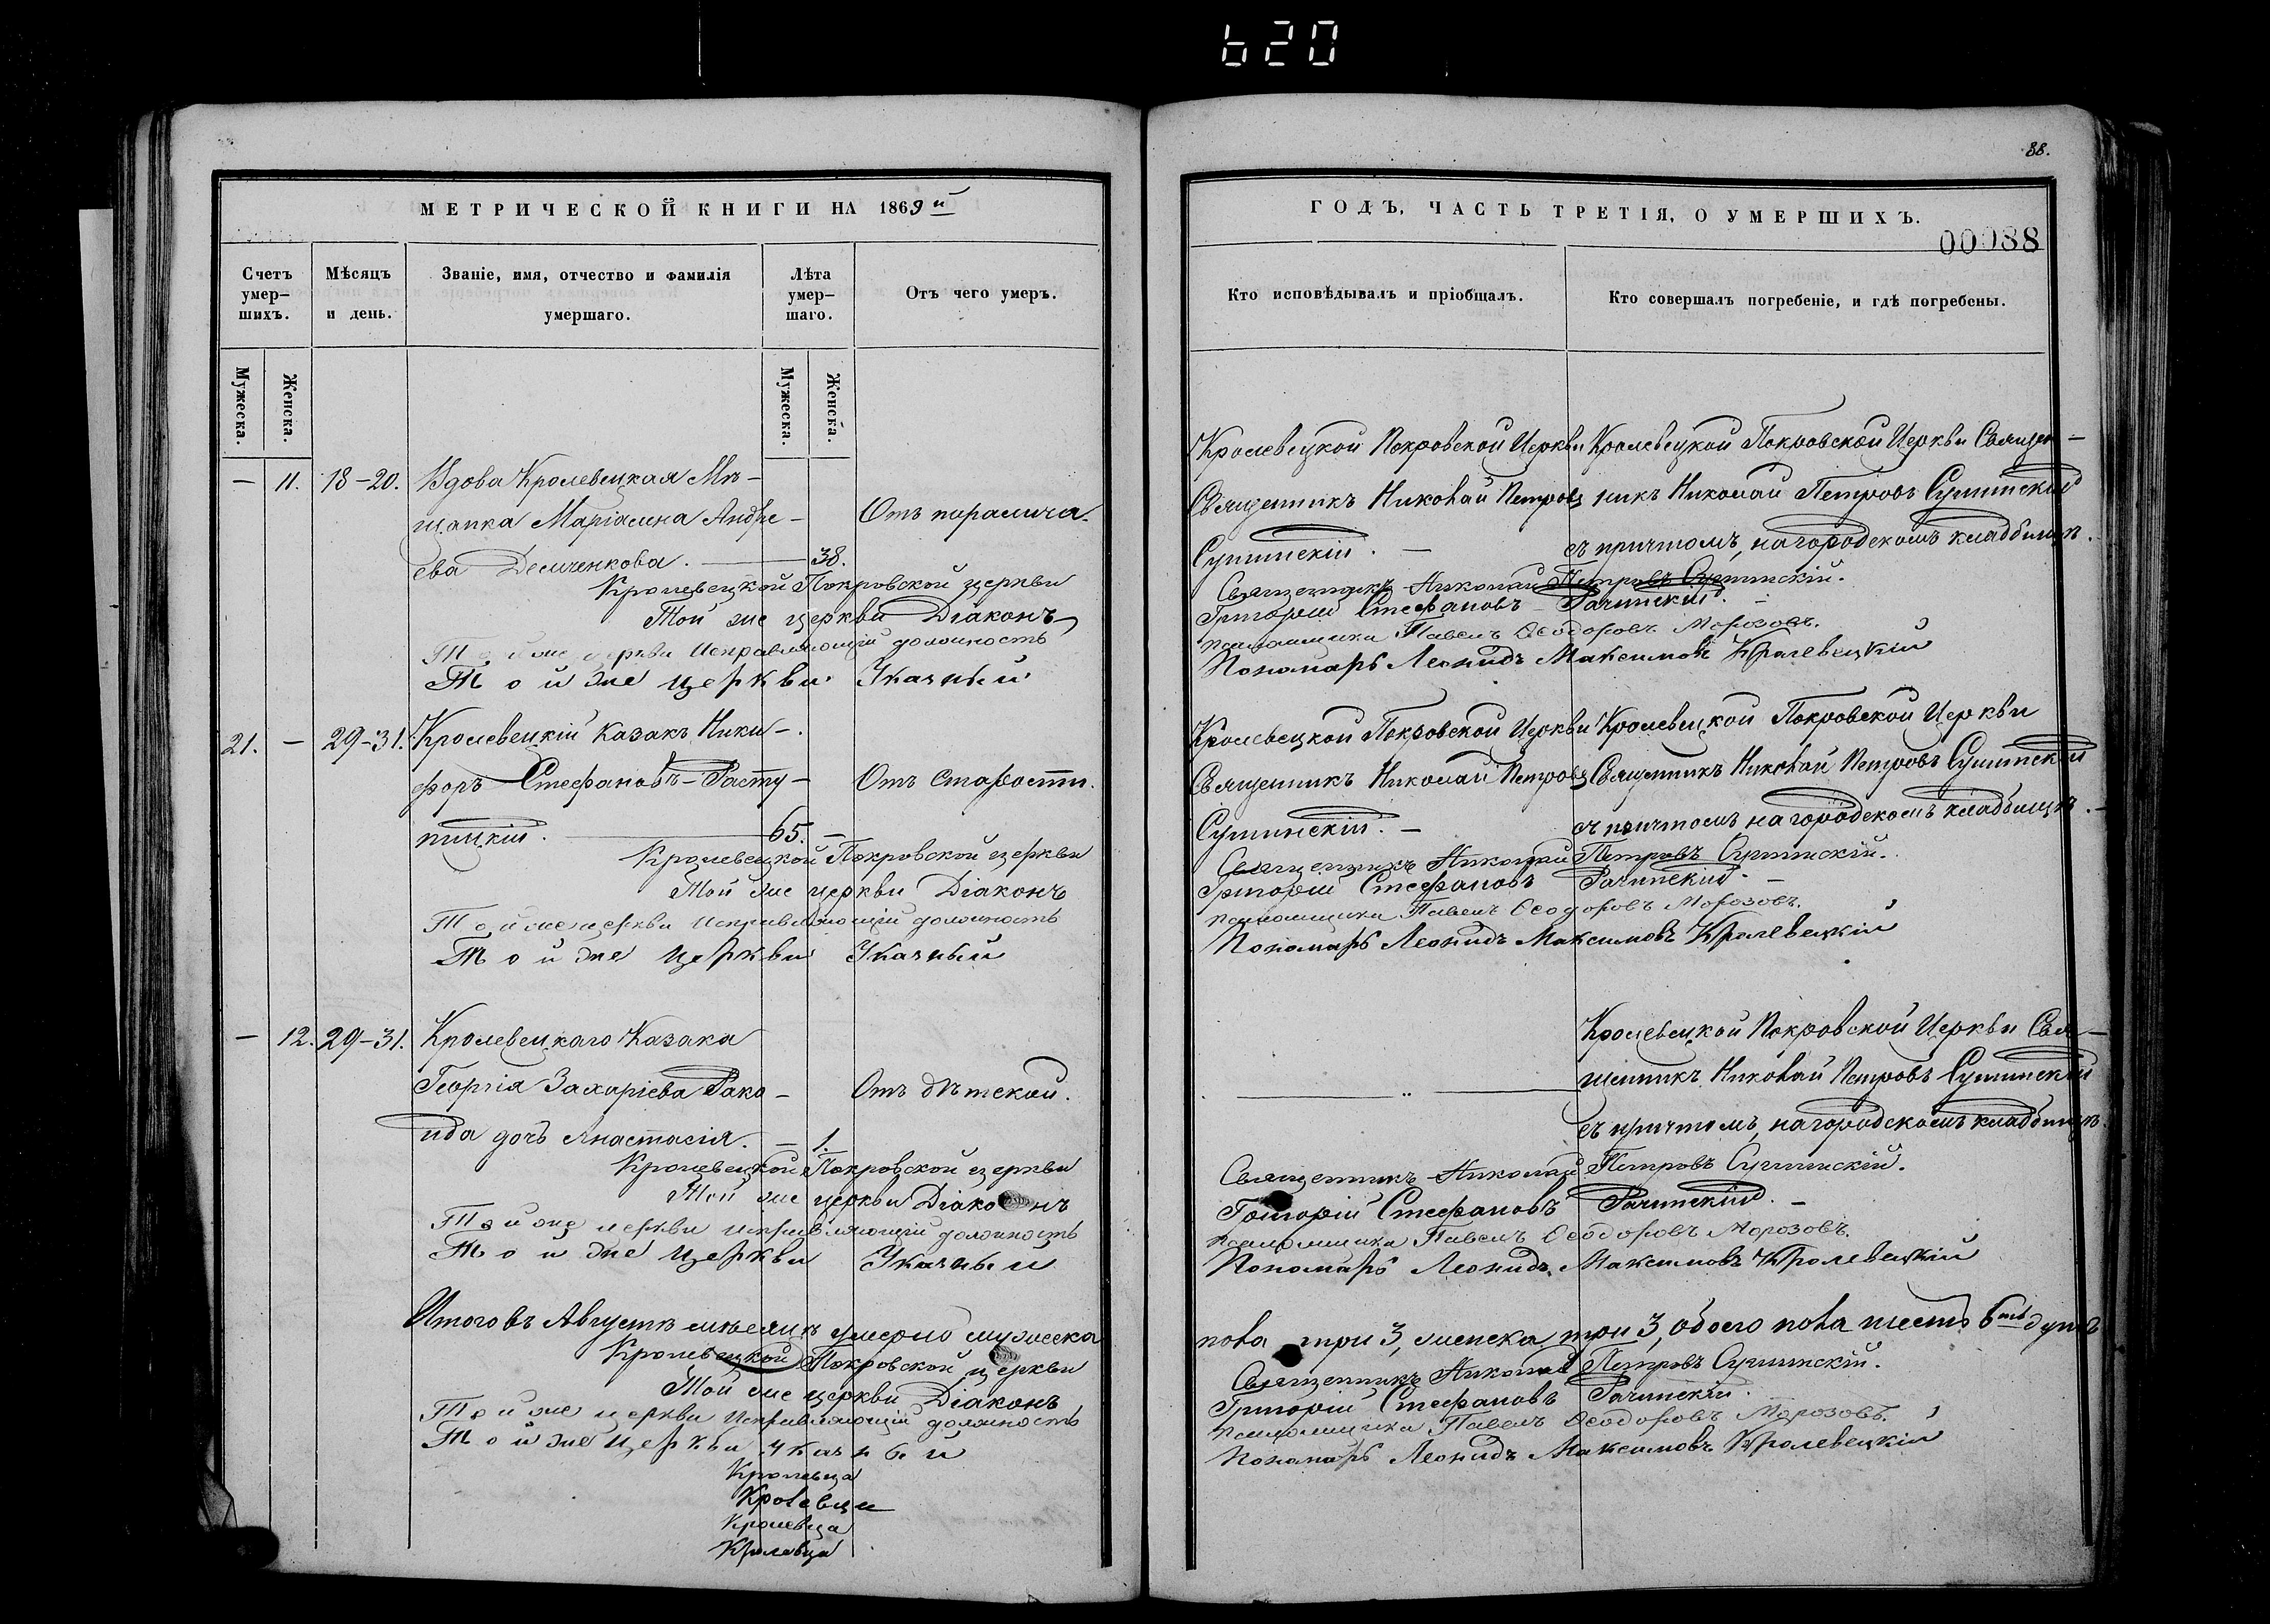 620
88.
МЕТРИЧЕСКОЙ КНИГИ НА 1869й
ГОДЪ, ЧАСТЬ ТРЕТІЯ, О УМЕРШИХЪ.
00088
Счетъ умер-
шихъ.
Мѣсяцъ
и день.
Званіе, имя, отчество и фамилія
умершаго.
Лѣта
умер-
шаго.
Отъ чего умеръ.
Кто исповѣдывалъ и пріобщалъ.
Кто совершалъ погребеніе, и гдѣ погребены.
Мужеска.
Женска.
Мужеска.
Женска.
— 11. 18-20. Вдова Кролевецкая Мѣ-
щанка Маріамна Андре-
ева Демченкова. — 38.
Отъ паралича.
Кролевецкой Покровской Церкви
Священникъ Николай Петровъ
Сушинскій. —
Кролевецкой Покровской Церкви Священ-
никъ Николай Петровъ Сушинскій
съ причтомъ, на городскомъ кладбищѣ.
Кролевецкой Покровской церкви Священникъ Николай Петровъ Сушинскій.
Той же церкви Діаконъ Григорій Стефановъ Рачинскій. —
Той же церкви Исправляющій должность псаломщика Павелъ Ѳеодоровъ Морозовъ.
Той же церкви Указный Пономарь Леонидъ Максимовъ Кролевецкій
21. — 29-31. Кролевецкій казакъ Ники-
форъ Стефановъ Расту-
пицкій. — 65. —
Отъ старости.
Кролевецкой Покровской Церкви
Священникъ Николай Петровъ
Сушинскій. —
Кролевецкой Покровской Церкви
Священникъ Николай Петровъ Сушинскій
съ причтомъ на городскомъ кладбищѣ. —
Кролевецкой Покровской церкви Священникъ Николай Петровъ Сушинскій.
Той же церкви Діаконъ Григорій Стефановъ Рачинскій. —
Той же церкви Исправляющій должность псаломщика Павелъ Ѳеодоровъ Морозовъ.
Той же церкви Указный Пономарь Леонидъ Максимовъ Кролевецкій
— 12. 29-31. Кролевецкаго Казака
Георгія Захаріева Рако-
ида дочь Анастасія. — 1.
Отъ дѣтской.
Кролевецкой Покровской Церкви Свя-
щенникъ Николай Петровъ Сушинскій
съ причтомъ, на городскомъ кладбищѣ.
Кролевецкой Покровской церкви Священникъ Николай Петровъ Сушинскій.
Той же церкви Діаконъ Григорій Стефановъ Рачинскій. —
Той же церкви исправляющій должность псаломщика Павелъ Ѳеодоровъ Морозовъ.
Той же церкви Указный Пономарь Леонидъ Максимовъ Кролевецкій
Итого въ Августѣ мѣсяцѣ умерло мужеска пола три 3, женска три 3, обоего пола шесть 6ть душъ
Кролевецкой Покровской церкви Священникъ Николай Петровъ Сушинскій.
Той же церкви Діаконъ Григорій Стефановъ Рачинскій.
Той же церкви Исправляющій должность псаломщика Павелъ Ѳеодоровъ Морозовъ.
Той же церкви Указный Пономарь Леонидъ Максимовъ Кролевецкій
Кролевца
Кролевца
Кролевца
Кролевца